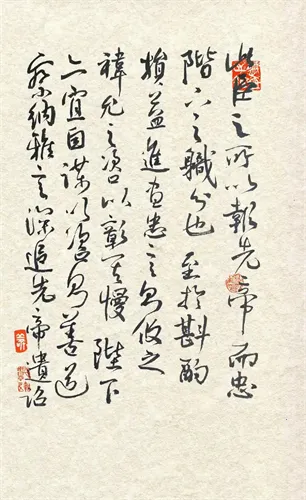 此臣之所以報先帝而忠
階下之職分也 至於斟酌
損益進盡忠言則攸之
禕允之咎以彰其慢 陛下
亦宜自謀以咨諏善道
察納雅言深追先帝遺詔